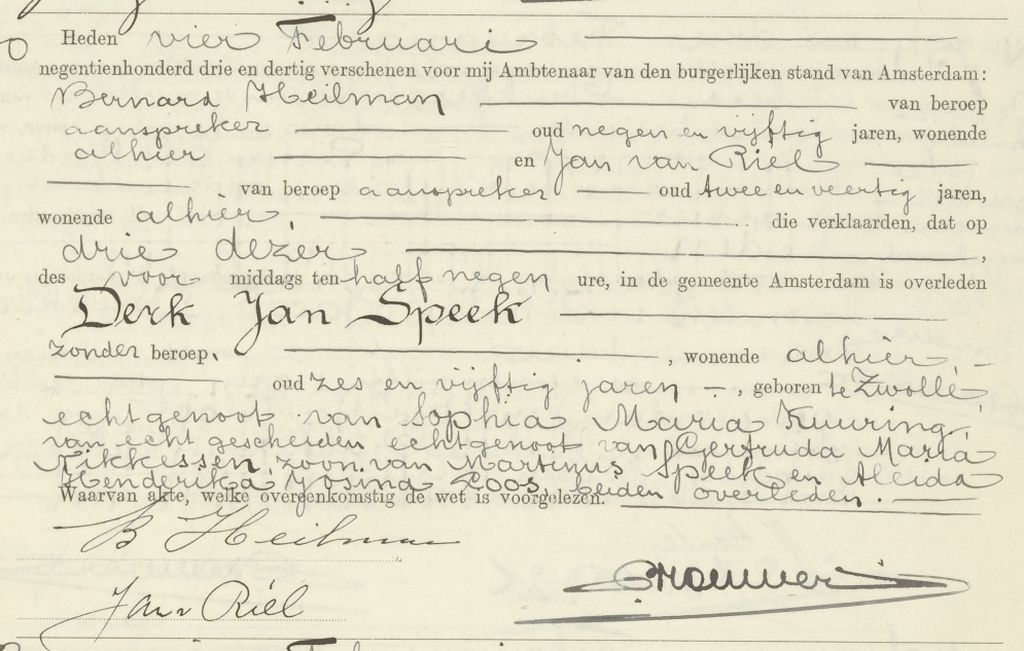 Heden vier Februari
negentienhonderd drie en dertig verschenen voor mij Ambtenaar van den burgerlijken stand van Amsterdam:
Bernard Heilman van beroep
aanspreker oud negen en vijftig jaren, wonende
alhier en Jan van Riél
van beroep aanspreker oud twee en veertig jaren,
wonende alhier, die verklaarden, dat op
drie dezer,
des voor middags ten half negen ure, in de gemeente Amsterdam is overleden
Derk Jan Speek
zonder beroep, wonende alhier
oud zes en vijftig jaren, geboren te Zwolle,
echtgenoot van Sophia Maria Kuuring,
van echt gescheiden echtgenoot van Gertruda Maria
Nikkessen, zoon van Martinus Speek en Aleida
Henderika Josina Loos, beiden overleden.
Waarvan akte, welke overeenkomstig de wet is voorgelezen.
B Heilman
Brouwer
Jan v Riél